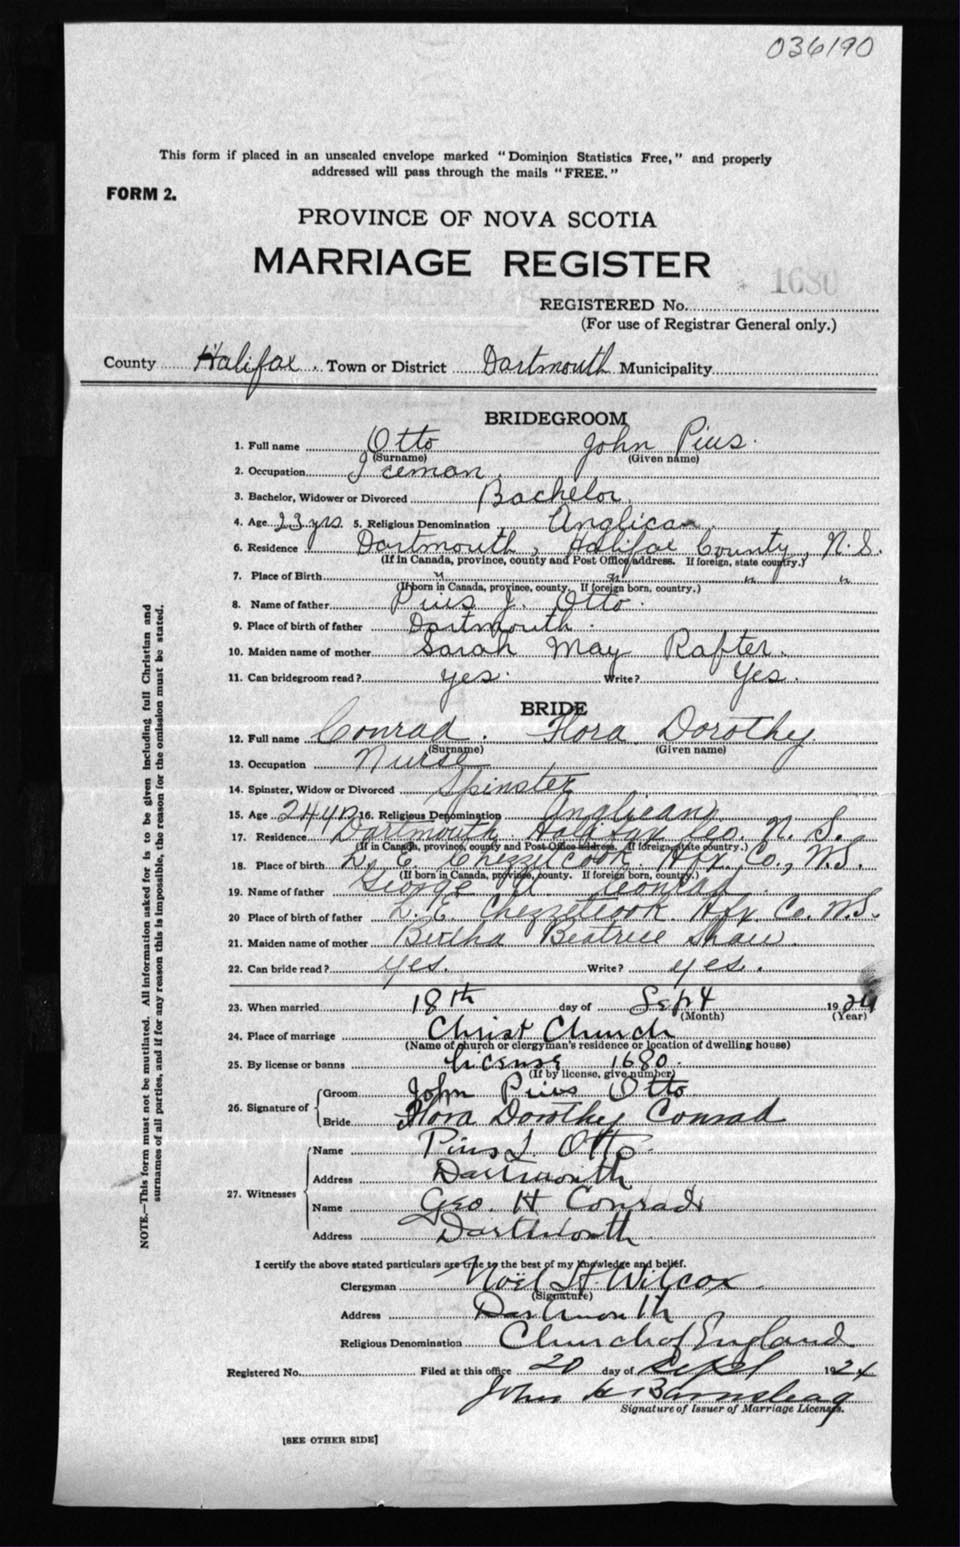 036190
This form if placed in an unsealed envelope marked "Dominion Statistics Free," and properly
addressed will pass through the mails "FREE."
FORM 2.
PROVINCE OF NOVA SCOTIA
MARRIAGE REGISTER
1680
REGISTERED No.
(For use of Registrar General only.)
County Halifax Town or District Dartmouth Municipality
BRIDEGROOM
1. Full name Otto John Pius
(Surname) (Given name)
2. Occupation Iceman
3. Bachelor, Widower or Divorced Bachelor
4. Age 23 yrs. 5. Religious Denomination Anglican
6. Residence Dartmouth, Halifax County, N.S.
(If in Canada, province, county and Post Office address. If foreign, state country.)
7. Place of Birth " " " "
(If born in Canada, province, county. If foreign born, country.)
8. Name of father Pius J. Otto
9. Place of birth of father Dartmouth
10. Maiden name of mother Sarah May Rafter
11. Can bridegroom read? yes. Write? Yes.
BRIDE
12. Full name Conrad. Flora Dorothy
(Surname) (Given name)
13. Occupation Nurse
14. Spinster, Widow or Divorced Spinster
15. Age 24 16. Religious Denomination Anglican
17. Residence Dartmouth Halifax Co. N.S.
(If in Canada, province, county and Post Office address. If foreign, state country.)
18. Place of birth L. E. Chezzetcook. Hfx. Co., N.S.
(If born in Canada, province, county. If foreign born, country.)
19. Name of father George Conrad
20 Place of birth of father L. E. Chezzetcook. Hfx. Co. N.S.
21. Maiden name of mother Bertha Beatrice Shaw.
22. Can bride read? yes. Write? yes.
23. When married 18th day of Sept 1924
(Month) (Year)
24. Place of marriage Christ Church
(Name of church or clergyman's residence or location of dwelling house)
25. By license or banns License 1680
(If by license, give number)
26. Signature of Groom John Pius Otto
Bride Flora Dorothy Conrad
27. Witnesses Name Pius J. Otto
Address Dartmouth
Name Geo. H Conrad
Address Dartmouth
I certify the above stated particulars are true to the best of my knowledge and belief.
Clergyman Noël H. Wilcox
(Signature)
Address Dartmouth
Religious Denomination Church of England
Registered No. Filed at this office 20 day of Sept 1924
John Barnstead
Signature of Issuer of Marriage Licenses.
[SEE OTHER SIDE]
NOTE.—This form must not be mutilated. All information asked for is to be given including full Christian and
surnames of all parties, and if for any reason this is impossible, the reason for the omission must be stated.